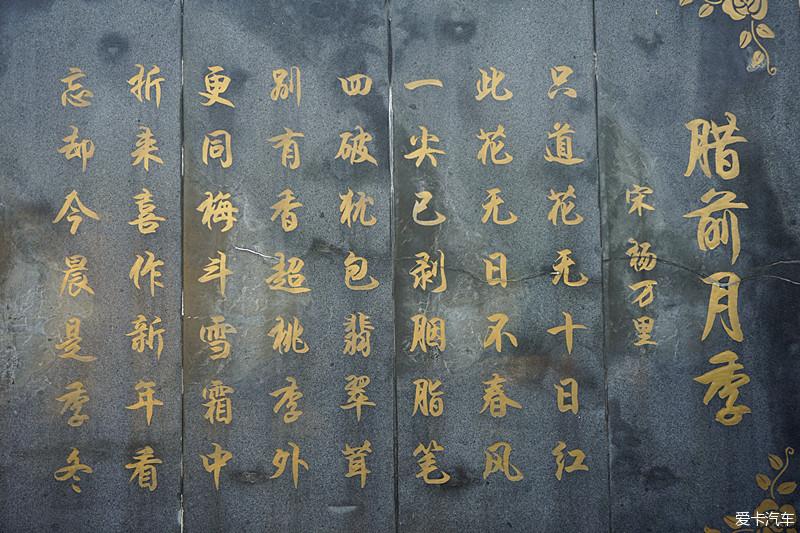 腊前月季
宋 杨万里
只道花无十日红
此花无日不春风
一尖已剥胭脂笔
四破犹包翡翠茸
别有香超桃李外
更同梅斗雪霜中
折来喜作新年看
忘却今晨是季冬
爱卡汽车